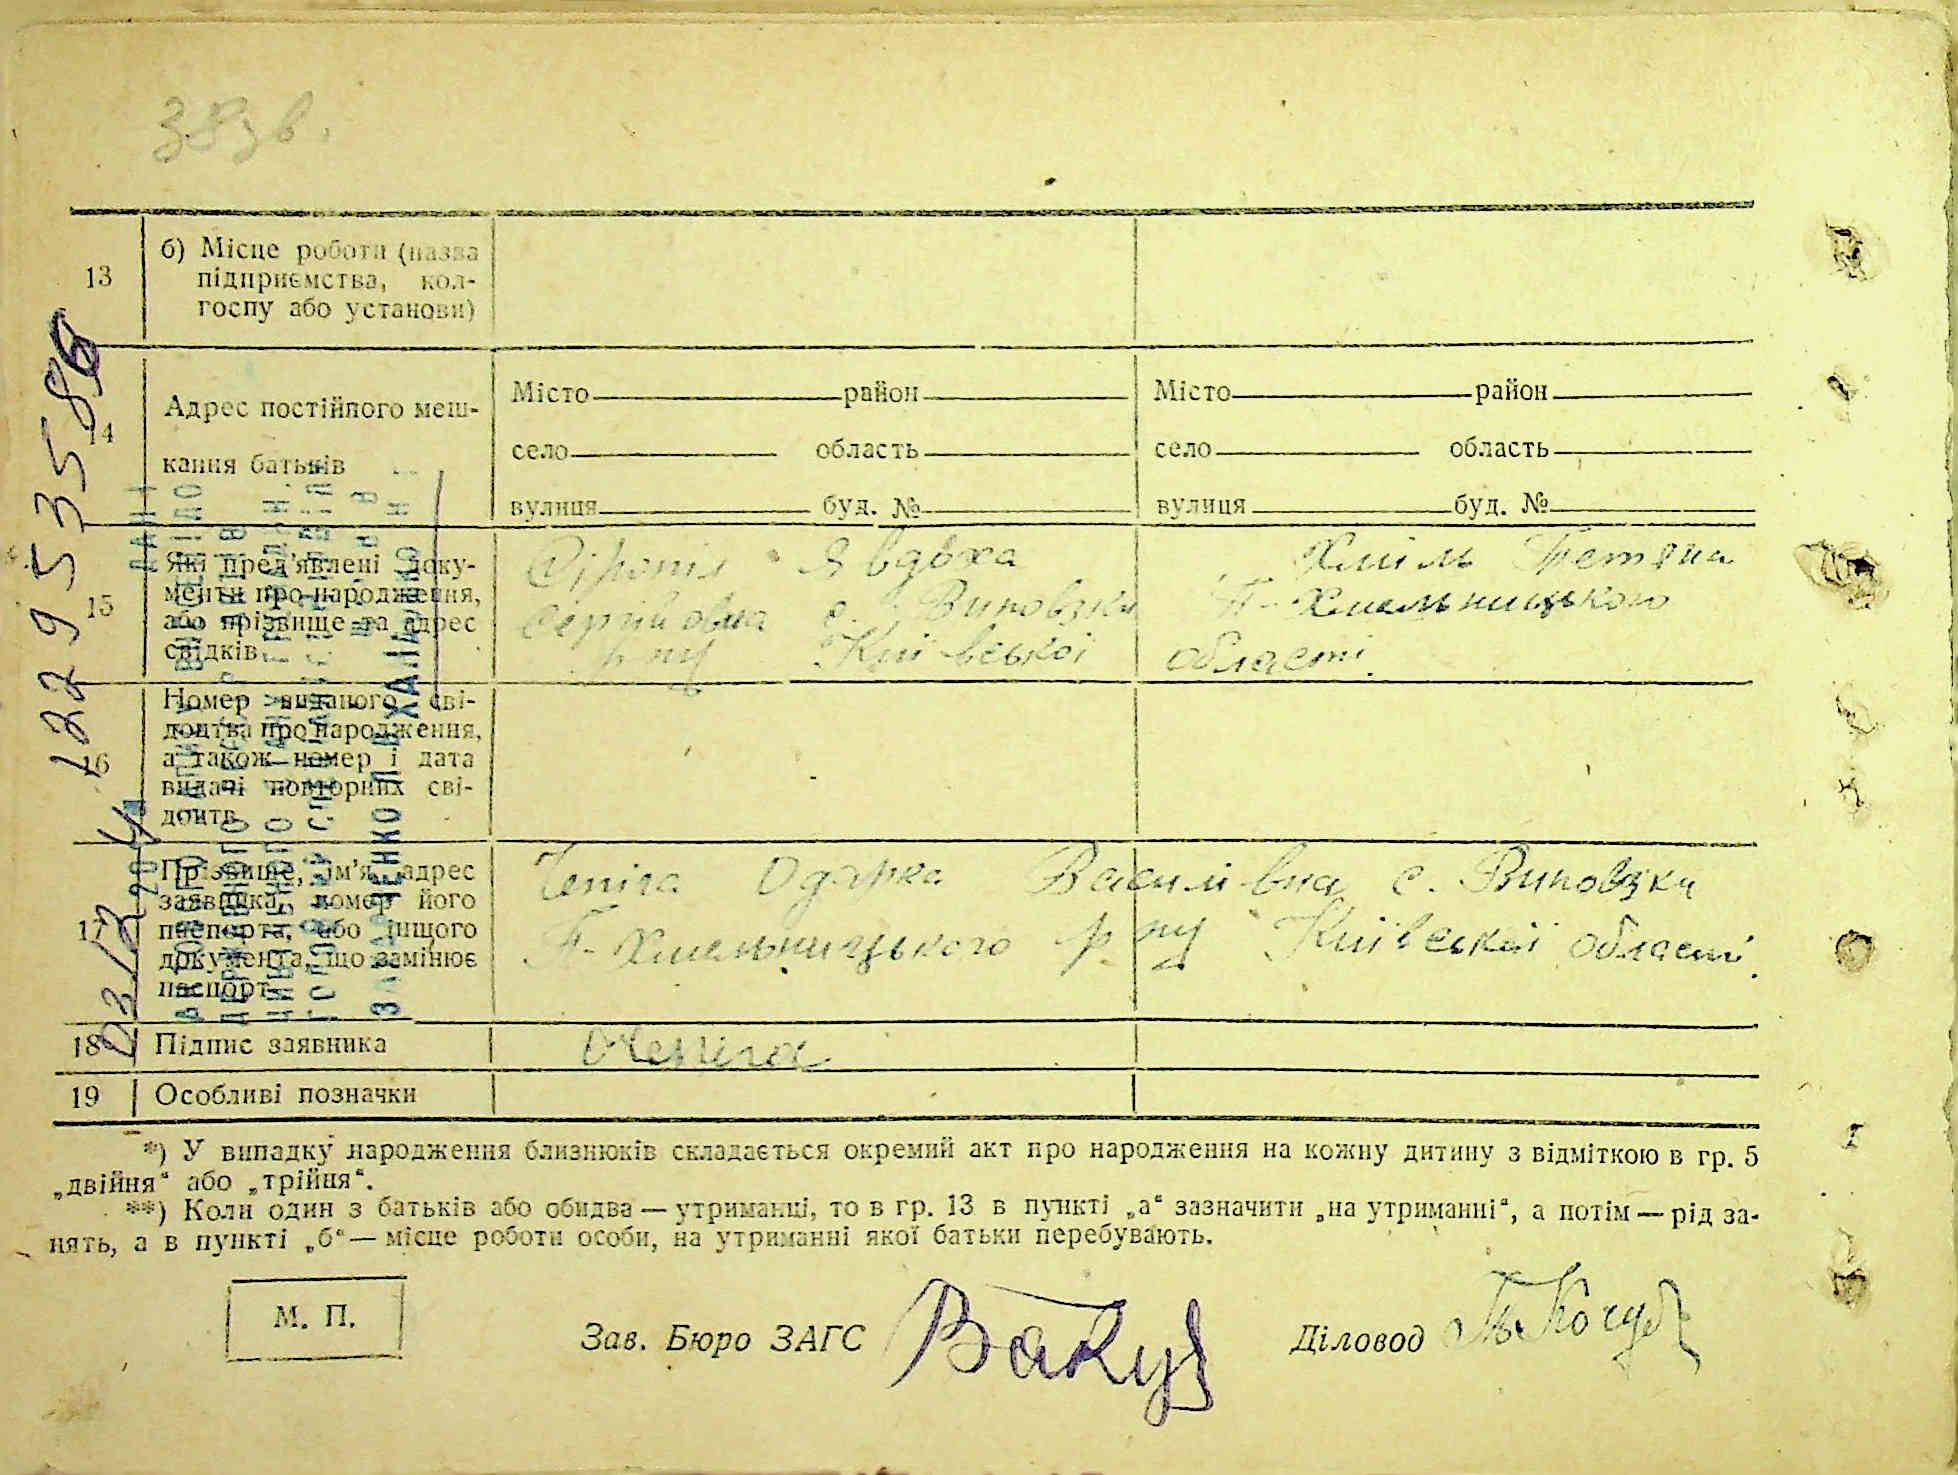 383в.
13
б) Місце роботи (назва
підприємства, кол-
госпу або установи)
14
Адрес постійного меш-
кання батьків
Місто район
село область
вулиця буд. №
Місто район
село область
вулиця буд. №
15
Які пред'явлені доку-
менти про народження,
або прізвище та адрес
свідків
Явдоха
с. Виповзки
р-ну Київської
Хміль Тетяна
П-Хмельницького
області
16
Номер виданого сві-
доцтва про народження,
а також номер і дата
видачі повторних сві-
доцтв
17
Прізвище, ім'я, адрес
заявника, номер його
паспорта, або іншого
документа, що замінює
паспорт
Чепіга Одарка Василівна с. Виповзки
П-Хмельницького р-ну Київської області
18
Підпис заявника
Чепіга
19
Особливі позначки
*) У випадку народження близнюків складається окремий акт про народження на кожну дитину з відміткою в гр. 5
„двійня“ або „трійня“.
**) Коли один з батьків або обидва — утриманці, то в гр. 13 в пункті „а“ зазначити „на утриманні“, а потім — рід за-
нять, а в пункті „б“ — місце роботи особи, на утриманні якої батьки перебувають.
М. П.
Зав. Бюро ЗАГС
Діловод